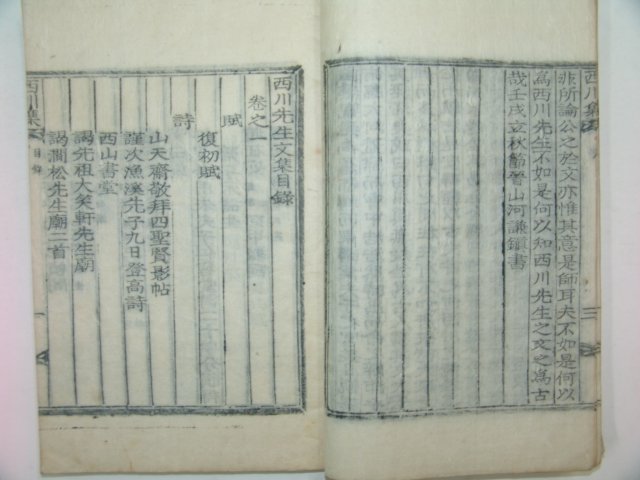 西川集
三
非所論公之於文亦惟其意是師耳夫不如是何以
為西川先生不如是何以知西川先生之文之為古
哉壬戌立秋節晉山河謙鎭書
西川先生文集目錄
卷之一
賦
復初賦
詩
山天齋敬拜四聖賢影帖
謹次漁溪先子九日登高詩
西山書堂
謁先祖大笑軒先生廟
謁澗松先生廟二首
西川集
目錄
一